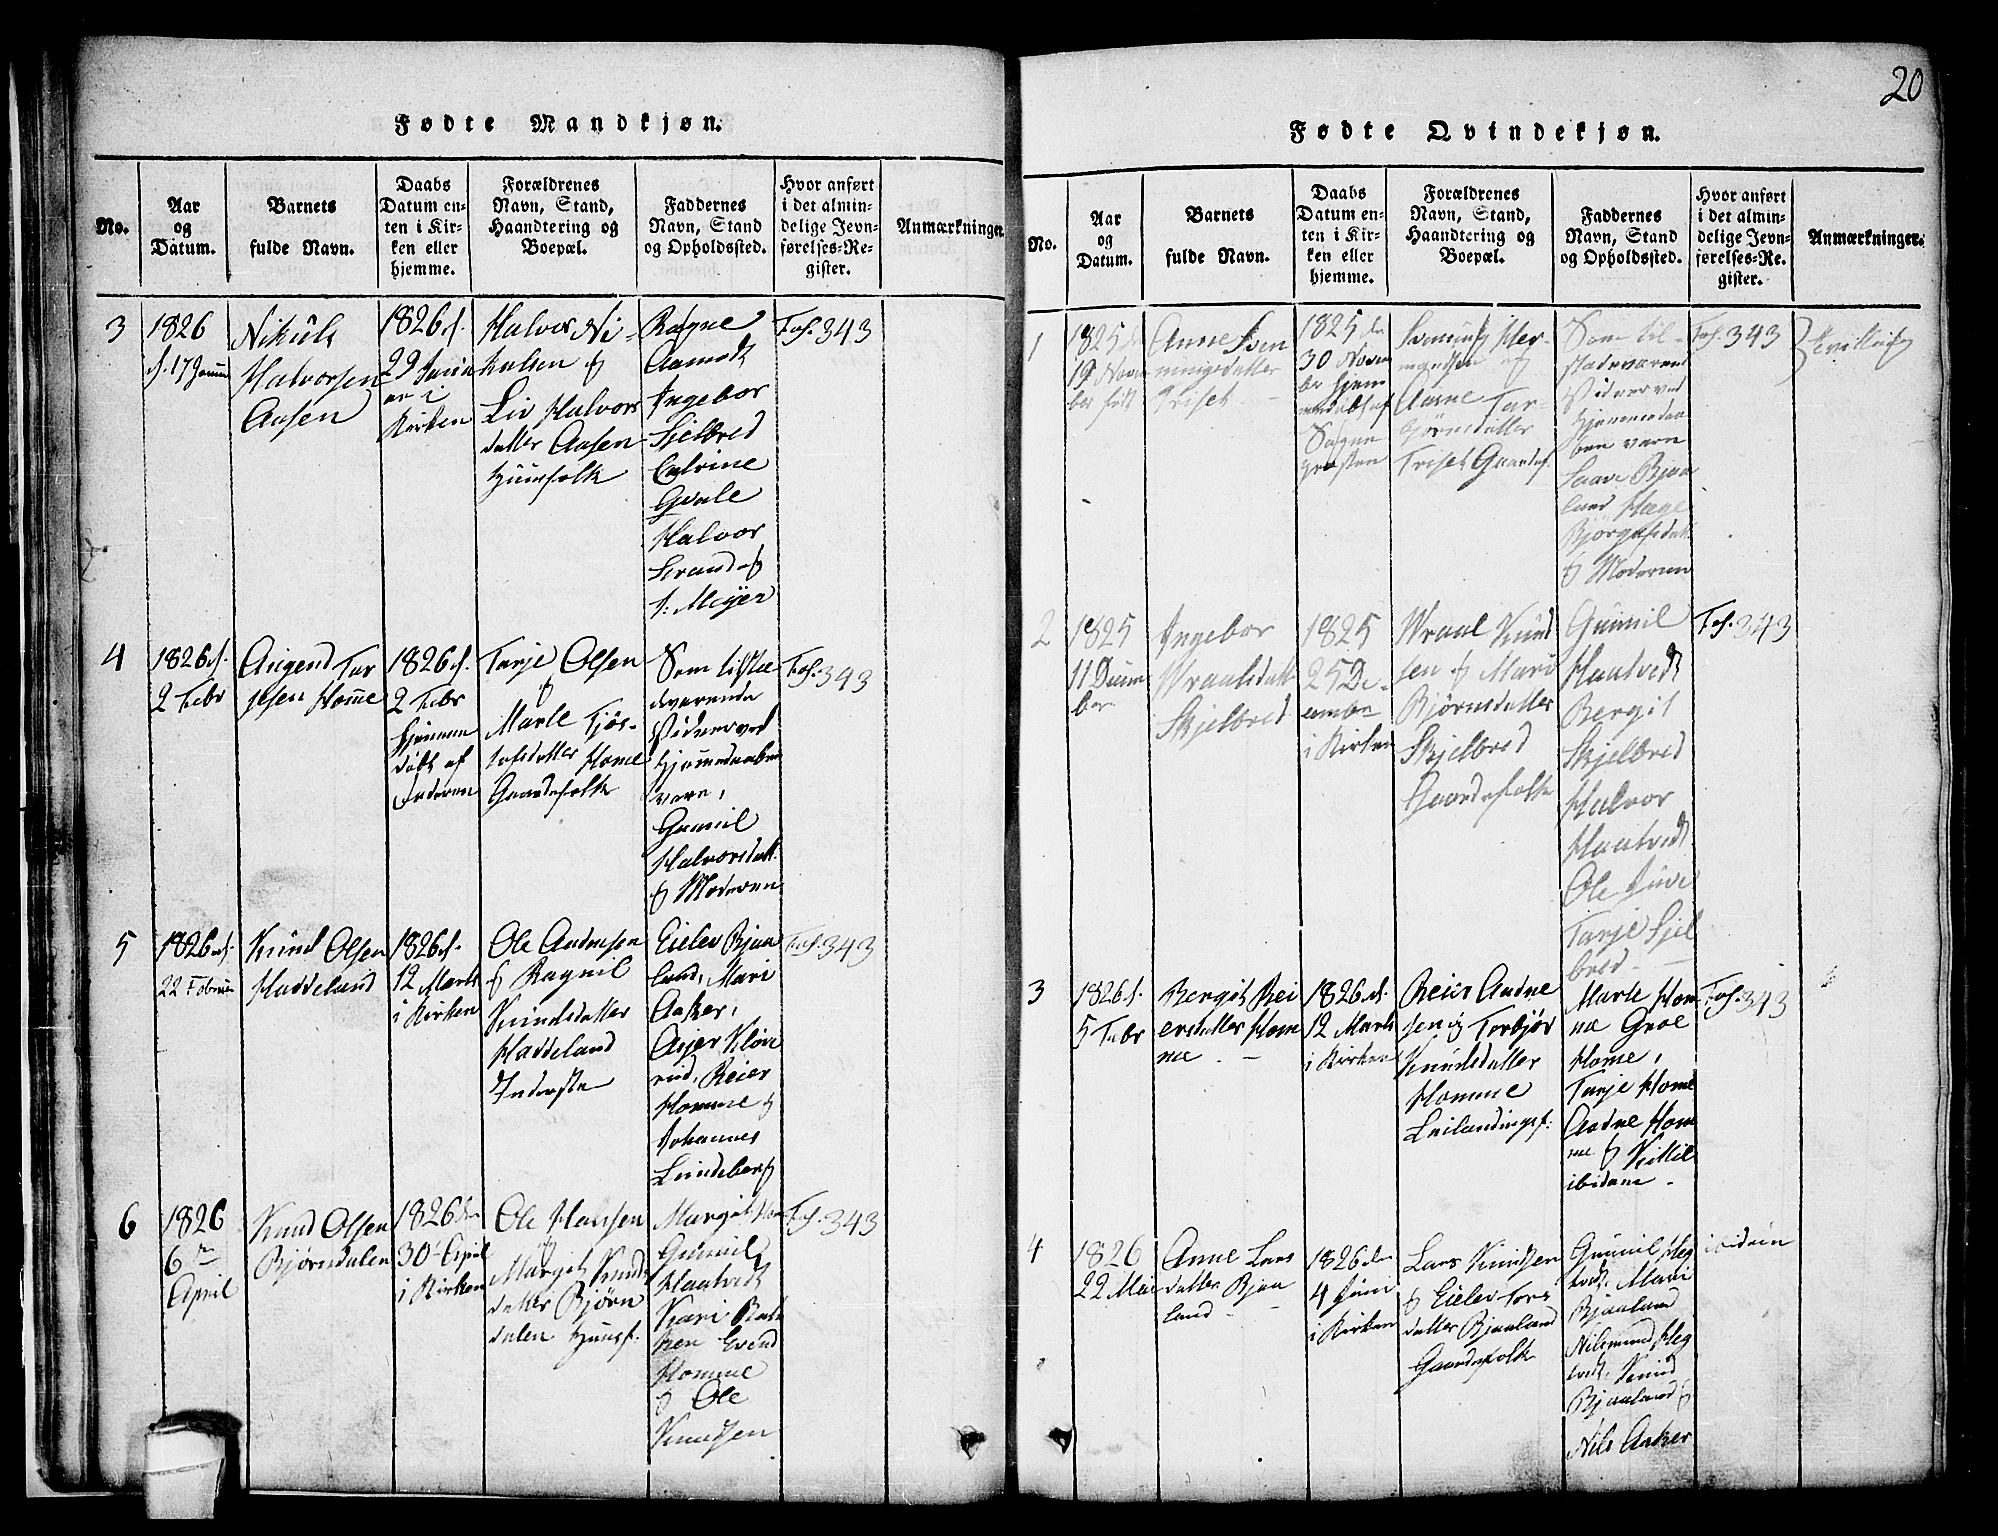 20
Fødte Mandkjøn.
No.
Aar
og
Datum.
Barnets
fulde Navn.
Daabs
Datum en-
ten i Kir-
ken eller
hjemme.
Forældrenes
Navn, Stand,
Haandtering og
Boepæl.
Faddernes
Navn, Stand
og Opholdssted.
Hvor anført
i det almin-
delige Jevn-
førelses-Re-
gister.
Anmærkninger.
3
1826
d. 17 Januar
Nikuls
Halvorsen
Aasen
1826 d.
29 Januar
i
Kirken
Halvor Ni-
kulsen &
Liv Halvors
datter Aasen
Huusfolk
Ragne
Aamodt
Ingebor
Sjelbred
Catrine
Qvale
Halvor
Strand &
J: Meijer
Fol. 343
4
1826 d.
2 Febr
Augend Tar
jesen Homme
1826 d.
2 Febr
hjemme
døbt af
Faderen
Tarje Olsen
&
Marte Tjøs-
tolsdatter Home
Gaardsfolk
Som tilstæ
dværende
Vidner ved
Hjemmedaaben
vare,
Gunnil
Halvorsdatt.
& Moderen
Fol. 343
5
1826 d.
22 Februar
Knud Olsen
Haddeland
1826 d.
12 Marts
i Kirken
Ole Andersen
& Ragnil
Knudsdatter
Haddeland
Inderste
Eielev Bjaa
land, Mari
Aaker,
Reier
Homme &
Johannes
Lundeberg
Fol. 343
6
1826
6te
April
Knud Olsen
Bjørndalen
1826 den
30 April
i Kirken
Ole Hansen
&
Margit Knuds
datter Bjørn
dalen Huusf.
Margit Hom
Gunnil
Haatvedt
Kari Bak
ken Evend
Homme
& Ole
Knudsen
Fol. 343
Fødte Qvindekjøn.
No.
Aar
og
Datum.
Barnets
fulde Navn.
Daabs
Datum en-
ten i Kir-
ken eller
hjemme.
Forældrenes
Navn, Stand,
Haandtering og
Boepæl.
Faddernes
Navn, Stand
og Opholdssted.
Hvor anført
i det almin-
delige Jevn-
førelses-Re-
gister.
Anmærkninger.
1
1825 d
19 Novem
ber født
Anne Sven
nungsdatter
Triset
1825 den
30 Novem
ber hjem
medøbt af
Sogne
præsten
Svenung Her-
mandsen &
Aasne Tar-
bjørnsdatter
Triset Gaardsf.
Som til-
stædeværende
Vidner ved
Hjemmedaa
ben vare
Saave Bjaa
land Hæge
Bjørgufsdatt
& Moderen
Fol. 343
Tvilling
2
1825
11 Decem
ber
Ingebor
Wraalsdatt
Skjelbred
1825
25 De-
cember
i Kirken
Wraal Knud
sen & Mari
Bjørnsdatter
Skjelbred
Gaardsfolk
Gunnil
Haatvedt
Bergit
Skjelbred
Halvor
Haatvedt
Ole Juve
Tarje Sjel
bred
Fol. 343
3
1826 d.
5 Febr
Bergit Rei
ersdatter Hom
me
1826 d.
12 Marts
i Kirken
Reier Aadne
sen og Torbjør
Knudsdatter
Homme
Leilændingsf:
Marte Hom
me Groe
Home,
Tarje Home
Aadne Hom
me & Kittil
ibidem
Fol. 343
4
1826
22 Mai
Anne Lars
datter Bjaa
land
1826 den
4 Juni
i Kirken
Lars Knudsen
& Eielev Tors
datter Bjaaland
Gaardsfolk
Gunnil Heg
tvedt, Mari
Bjaaland
Nilsmund Heg
tvedt, Knud
Bjaaland &
Nils Aaker
ibidem